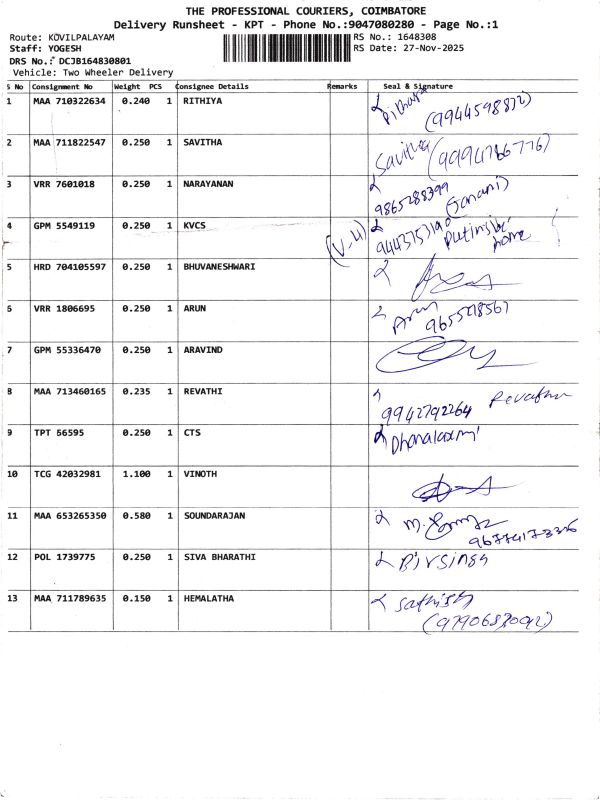 THE PROFESSIONAL COURIERS, COIMBATORE
Delivery Runsheet - KPT - Phone No.:9047080280 - Page No.:1
Route: KOVILPALAYAM
RS No.: 1648308
Staff: YOGESH
RS Date: 27-Nov-2025
DRS No.: DCJB164830801
Vehicle: Two Wheeler Delivery
S No Consignment No Weight PCS Consignee Details Remarks Seal & Signature
1 MAA 710322634 0.240 1 RITHIYA
2 MAA 711822547 0.250 1 SAVITHA Savitha
3 VRR 7601018 0.250 1 NARAYANAN
9865288399 (Janani)
4 GPM 5549119 0.250 1 KVCS (V-4)
home
5 HRD 704105597 0.250 1 BHUVANESHWARI
6 VRR 1806695 0.250 1 ARUN Arun
7 GPM 55336470 0.250 1 ARAVIND
8 MAA 713460165 0.235 1 REVATHI Revathi
9942792264
9 TPT 56595 0.250 1 CTS Dhanalaxmi
10 TCG 42032981 1.100 1 VINOTH
11 MAA 653265350 0.580 1 SOUNDARAJAN
12 POL 1739775 0.250 1 SIVA BHARATHI Birsingh
13 MAA 711789635 0.150 1 HEMALATHA Sathish